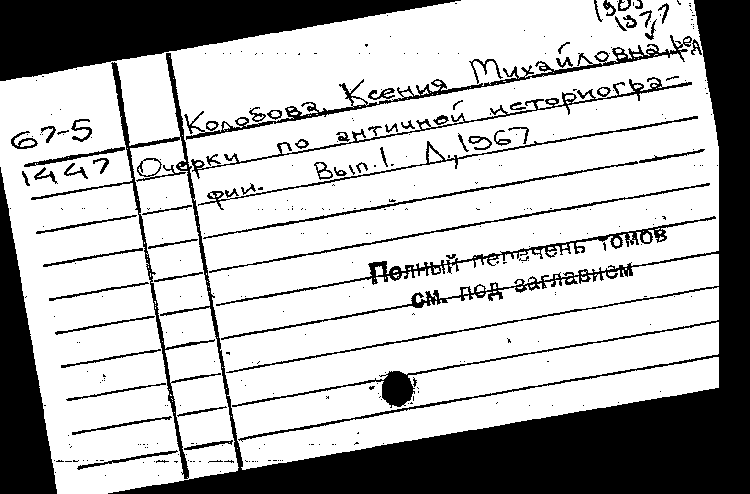 1905
1977
Колобова, Ксения Михайловна, ред
67-5
1447
Очерки по античной историогра-
фии. Вып.1. Л., 1967.
Полный перечень томов
см. под заглавием